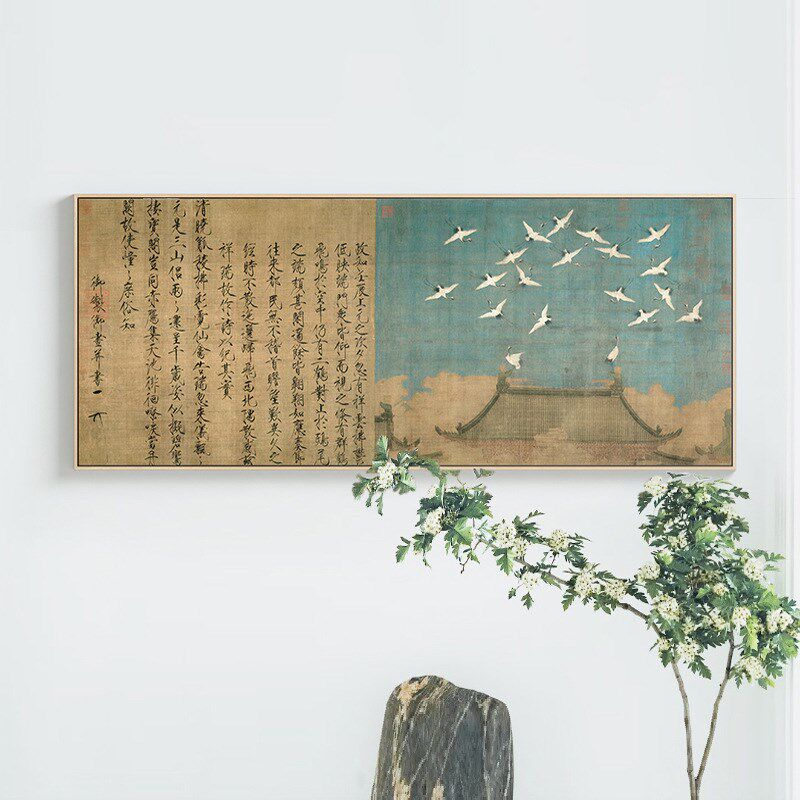 政和壬辰上元之次夕忽有祥雲拂鬱
低映端門眾皆仰而視之倏有群鶴
飛鳴於空中仍有二鶴對止於鴟尾
之端頗甚閒適餘皆翱翔如應奏節
往來都民無不稽首瞻望歎異久之
經時不散迤邐歸飛西北隅散感茲
祥瑞故作詩以紀其實
清曉觚稜拂彩霓仙禽告瑞忽來儀飄々
元是三山侶兩々還呈千歲姿似擬碧鸞
棲寶閣豈同赤雁集天池徘徊嘹唳當丹
闕故使憧々庶俗知
御製御畫并書